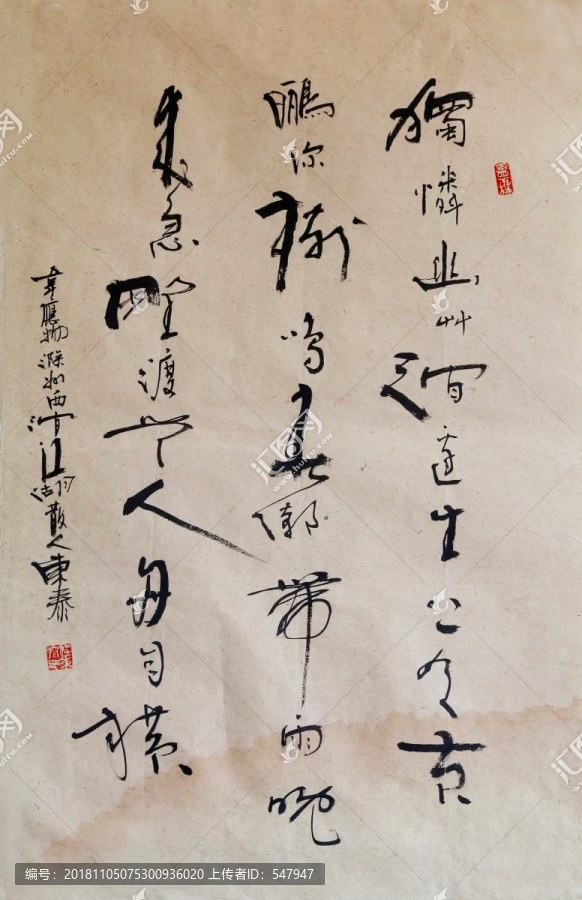 獨憐幽艸澗邊生上有黃
鸝深樹鳴春潮帶雨晚
來急野渡無人舟自橫
韋應物滁州西澗江湖散人東泰
编号：20181105075300936020 上传者ID：547947